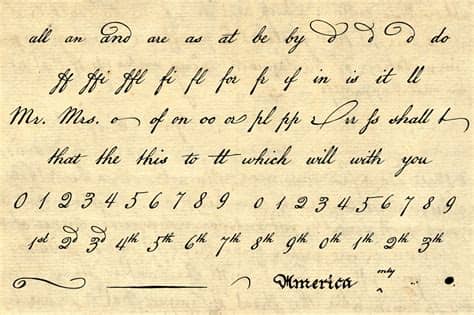 all an and are as at be by d d d d do
ff ffi ffl fi fl for fr if in is it ll
Mr. Mrs. o of on oo or pl pp r rr ſs shall t
that the this to tt which will with you
0 1 2 3 4 5 6 7 8 9 0 1 2 3 4 5 6 7 8 9
1st 2d 3d 4th 5th 6th 7th 8th 9th 0th 1th 2th 3th
America only